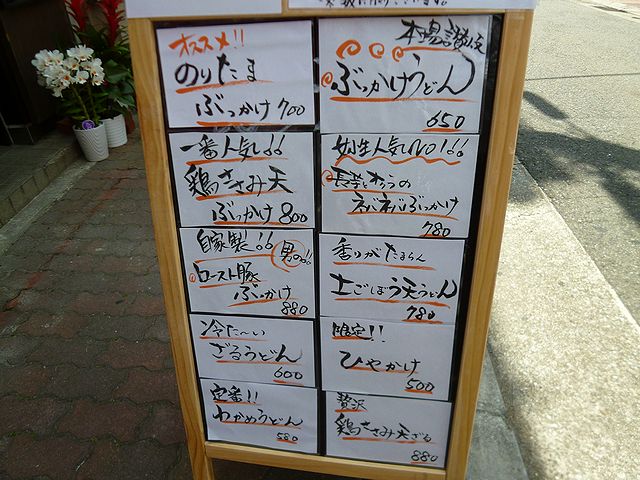 オススメ!!
のりたま
ぶっかけ 700
本場讃岐
ぶっかけうどん
650
一番人気!!
鶏ささみ天
ぶっかけ 800
女性人気NO1!!
長芋とオクラの
ネバネバぶっかけ
780
自家製!!
男の!!
ロースト豚
ぶっかけ
880
香りがたまらん
ごぼう天うどん
780
冷た〜い
ざるうどん
600
限定!!
ひやかけ
500
定番!!
わかめうどん
580
贅沢
鶏ささみ天ざる
880